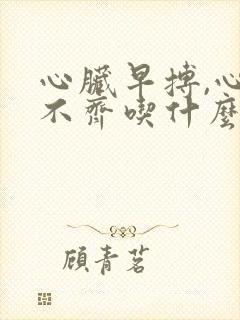 心臟早搏,心
不齊喫什麼
顧青茗